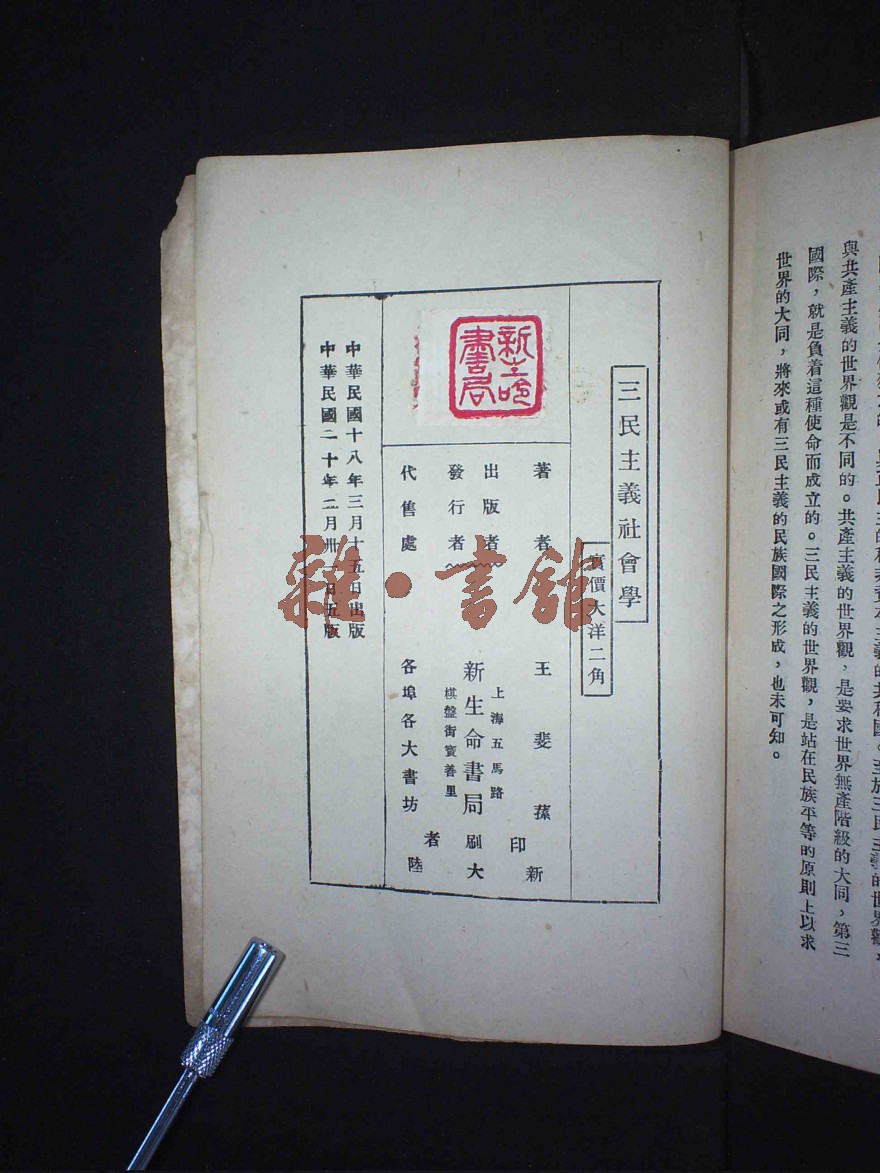 世界的大同，將來或有三民主義的民族國際之形成，也未可知。
國際，就是負着這種使命而成立的。三民主義的世界觀，是站在民族平等的原則上以求
與共產主義的世界觀是不同的。共產主義的世界觀，是要求世界無產階級的大同，第三
三民主義社會學
實價大洋二角
新生命書局
著者 王斐蓀
出版者
發行者
上海五馬路
新生命書局
棋盤街寶善里
代售處 各埠各大書坊
印刷者
新大陸
中華民國十八年三月十五日出版
中華民國二十年二月卅一日五版
雜·書館